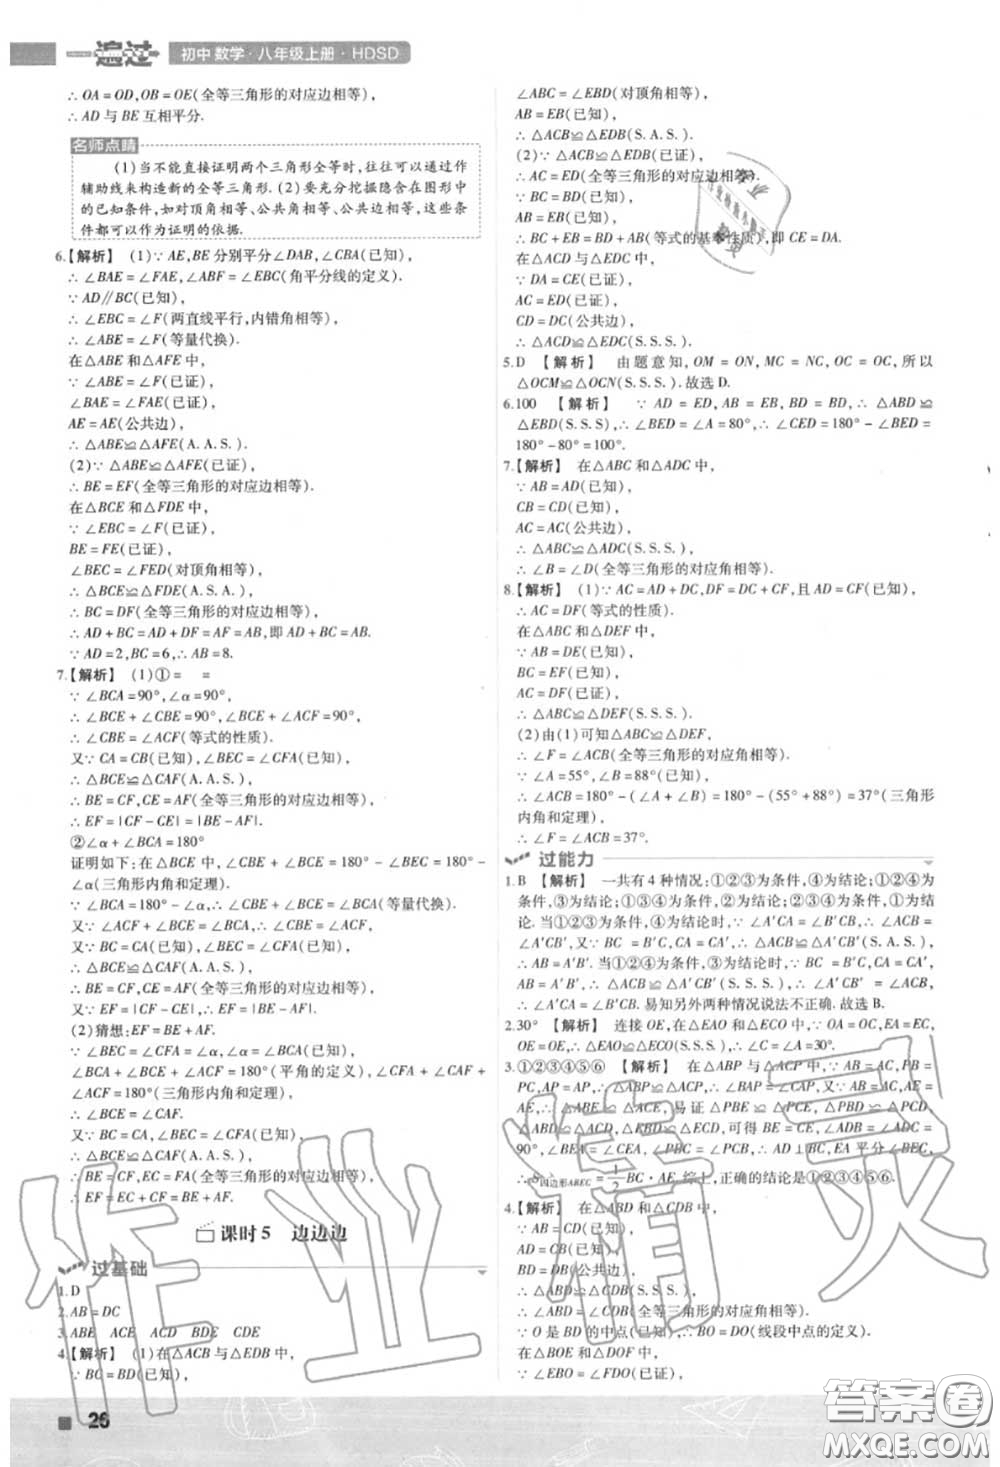 一遍过 初中数学·八年级上册·HDSD
∴ OA = OD,OB = OE(全等三角形的对应边相等),
∴ AD 与 BE 互相平分.
名师点睛
(1)当不能直接证明两个三角形全等时,往往可以通过作
辅助线来构造新的全等三角形.(2)要充分挖掘隐含在图形中
的已知条件,如对顶角相等、公共角相等、公共边相等,这些条
件都可以作为证明的依据.
6.【解析】 (1)∵ AE,BE 分别平分∠DAB,∠CBA(已知),
∴ ∠BAE = ∠FAE,∠ABF = ∠EBC(角平分线的定义).
∵ AD∥BC(已知),
∴ ∠EBC = ∠F(两直线平行,内错角相等),
∴ ∠ABE = ∠F(等量代换).
在△ABE 和△AFE 中,
∵ ∠ABE = ∠F(已证),
∠BAE = ∠FAE(已证),
AE = AE(公共边),
∴ △ABE≌△AFE(A.A.S.).
(2)∵ △ABE≌△AFE(已证),
∴ BE = EF(全等三角形的对应边相等).
在△BCE 和△FDE 中,
∵ ∠EBC = ∠F(已证),
BE = FE(已证),
∠BEC = ∠FED(对顶角相等),
∴ △BCE≌△FDE(A.S.A.),
∴ BC = DF(全等三角形的对应边相等),
∴ AD + BC = AD + DF = AF = AB,即 AD + BC = AB.
∵ AD = 2,BC = 6,∴ AB = 8.
7.【解析】 (1)① = =
∵ ∠BCA = 90°,∠α = 90°,
∴ ∠BCE + ∠CBE = 90°,∠BCE + ∠ACF = 90°,
∴ ∠CBE = ∠ACF(等式的性质).
又∵ CA = CB(已知),∠BEC = ∠CFA(已知),
∴ △BCE≌△CAF(A.A.S.),
∴ BE = CF,CE = AF(全等三角形的对应边相等),
∴ EF = |CF - CE| = |BE - AF|.
②∠α + ∠BCA = 180°
证明如下:在△BCE 中,∠CBE + ∠BCE = 180° - ∠BEC = 180° -
∠α(三角形内角和定理).
∵ ∠BCA = 180° - ∠α,∴ ∠CBE + ∠BCE = ∠BCA(等量代换).
又∵ ∠ACF + ∠BCE = ∠BCA,∴ ∠CBE = ∠ACF.
又∵ BC = CA(已知),∠BEC = ∠CFA(已知),
∴ △BCE≌△CAF(A.A.S.),
∴ BE = CF,CE = AF(全等三角形的对应边相等).
又∵ EF = |CF - CE|,∴ EF = |BE - AF|.
(2)猜想:EF = BE + AF.
∵ ∠BEC = ∠CFA = ∠α,∠α = ∠BCA,
∠BCA + ∠BCE + ∠ACF = 180°(平角的定义),
∠CFA + ∠CAF + ∠ACF = 180°(三角形内角和定理),
∴ ∠BCE = ∠CAF.
又∵ BC = CA,∠BEC = ∠CFA(已知),
∴ △BCE≌△CAF(A.A.S.),
∴ BE = CF,EC = FA(全等三角形的对应边相等),
∴ EF = EC + CF = BE + AF.
课时5 边边边
过基础
1.D
2.AB = DC
3.ABE ACE ACD BDE CDE
4.【解析】 (1)在△ACB 与△EDB 中,
∵ BC = BD(已知),
∠ABC = ∠EBD(对顶角相等),
AB = EB(已知),
∴ △ACB≌△EDB(S.A.S.).
(2)∵ △ACB≌△EDB(已证),
∴ AC = ED(全等三角形的对应边相等).
∵ BC = BD(已知),
AB = EB(已知),
∴ BC + EB = BD + AB(等式的基本性质),即 CE = DA.
在△ACD 与△EDC 中,
∵ DA = CE(已证),
AC = ED(已证),
CD = DC(公共边),
∴ △ACD≌△EDC(S.S.S.).
5.D 【解析】 由题意知,OM = ON,MC = NC,OC = OC,所以
△OCM≌△OCN(S.S.S.).故选 D.
6.100 【解析】 ∵ AD = ED,AB = EB,BD = BD,∴ △ABD≌
△EBD(S.S.S),∴ ∠BED = ∠A = 80°,∴ ∠CED = 180° - ∠BED =
180° - 80° = 100°.
7.【解析】 在△ABC 和△ADC 中,
∵ AB = AD(已知),
CB = CD(已知),
AC = AC(公共边),
∴ △ABC≌△ADC(S.S.S.),
∴ ∠B = ∠D(全等三角形的对应角相等).
8.【解析】 (1)∵ AC = AD + DC,DF = DC + CF,且 AD = CF(已知),
∴ AC = DF(等式的性质).
在△ABC 和△DEF 中,
∵ AB = DE(已知),
BC = EF(已知),
AC = DF(已证),
∴ △ABC≌△DEF(S.S.S.).
(2)由(1)可知△ABC≌△DEF,
∴ ∠F = ∠ACB(全等三角形的对应角相等).
∵ ∠A = 55°,∠B = 88°(已知),
∴ ∠ACB = 180° - (∠A + ∠B) = 180° - (55° + 88°) = 37°(三角形
内角和定理),
∴ ∠F = ∠ACB = 37°.
过能力
1.B 【解析】 一共有 4 种情况:①②③为条件,④为结论;①②④为
条件,③为结论;①③④为条件,②为结论;②③④为条件,①为结
论.当①②③为条件,④为结论时,∵ ∠A'CA = ∠B'CB,∴ ∠ACB =
∠A'CB',又∵ BC = B'C,CA = CA',∴ △ACB≌△A'CB'(S.A.S.),
∴ AB = A'B'. 当①②④为条件,③为结论时,∵ BC = B'C,CA = CA',
AB = A'B',∴ △ACB≌△A'CB'(S.S.S.),∴ ∠ACB = ∠A'CB',
∴ ∠A'CA = ∠B'CB. 易知另外两种情况说法不正确.故选 B.
2.30° 【解析】 连接 OE,在△EAO 和△ECO 中,∵ OA = OC,EA = EC,
OE = OE,∴ △EAO≌△ECO(S.S.S.),∴ ∠C = ∠A = 30°.
3.①②③④⑤⑥ 【解析】 在△ABP 与△ACP 中,∵ AB = AC,PB =
PC,AP = AP,∴ △ABP≌△ACP,∴ ∠BAP = ∠CAP,又 AB = AC,AE =
AE,∴ △ABE≌△ACE,易证△PBE≌△PCE,△PBD≌△PCD,
△ABD≌△ACD,△EBD≌△ECD,可得 BE = CE,∠ADB = ∠ADC =
90°,∠BEA = ∠CEA,∠PBC = ∠PCB,∴ AD⊥BC,EA 平分∠BEC,
∴ S四边形ABEC = 1/2 BC·AE. 综上,正确的结论是①②③④⑤⑥.
4.【解析】 在△ABD 和△CDB 中,
∵ AB = CD(已知),
AD = CB(已知),
BD = DB(公共边),
∴ △ABD≌△CDB(S.S.S.),
∴ ∠ABD = ∠CDB(全等三角形的对应角相等).
∵ O 是 BD 的中点(已知),∴ BO = DO(线段中点的定义).
在△BOE 和△DOF 中,
∵ ∠EBO = ∠FDO(已证),
26
作业精灵
答案圈
MXQE.COM